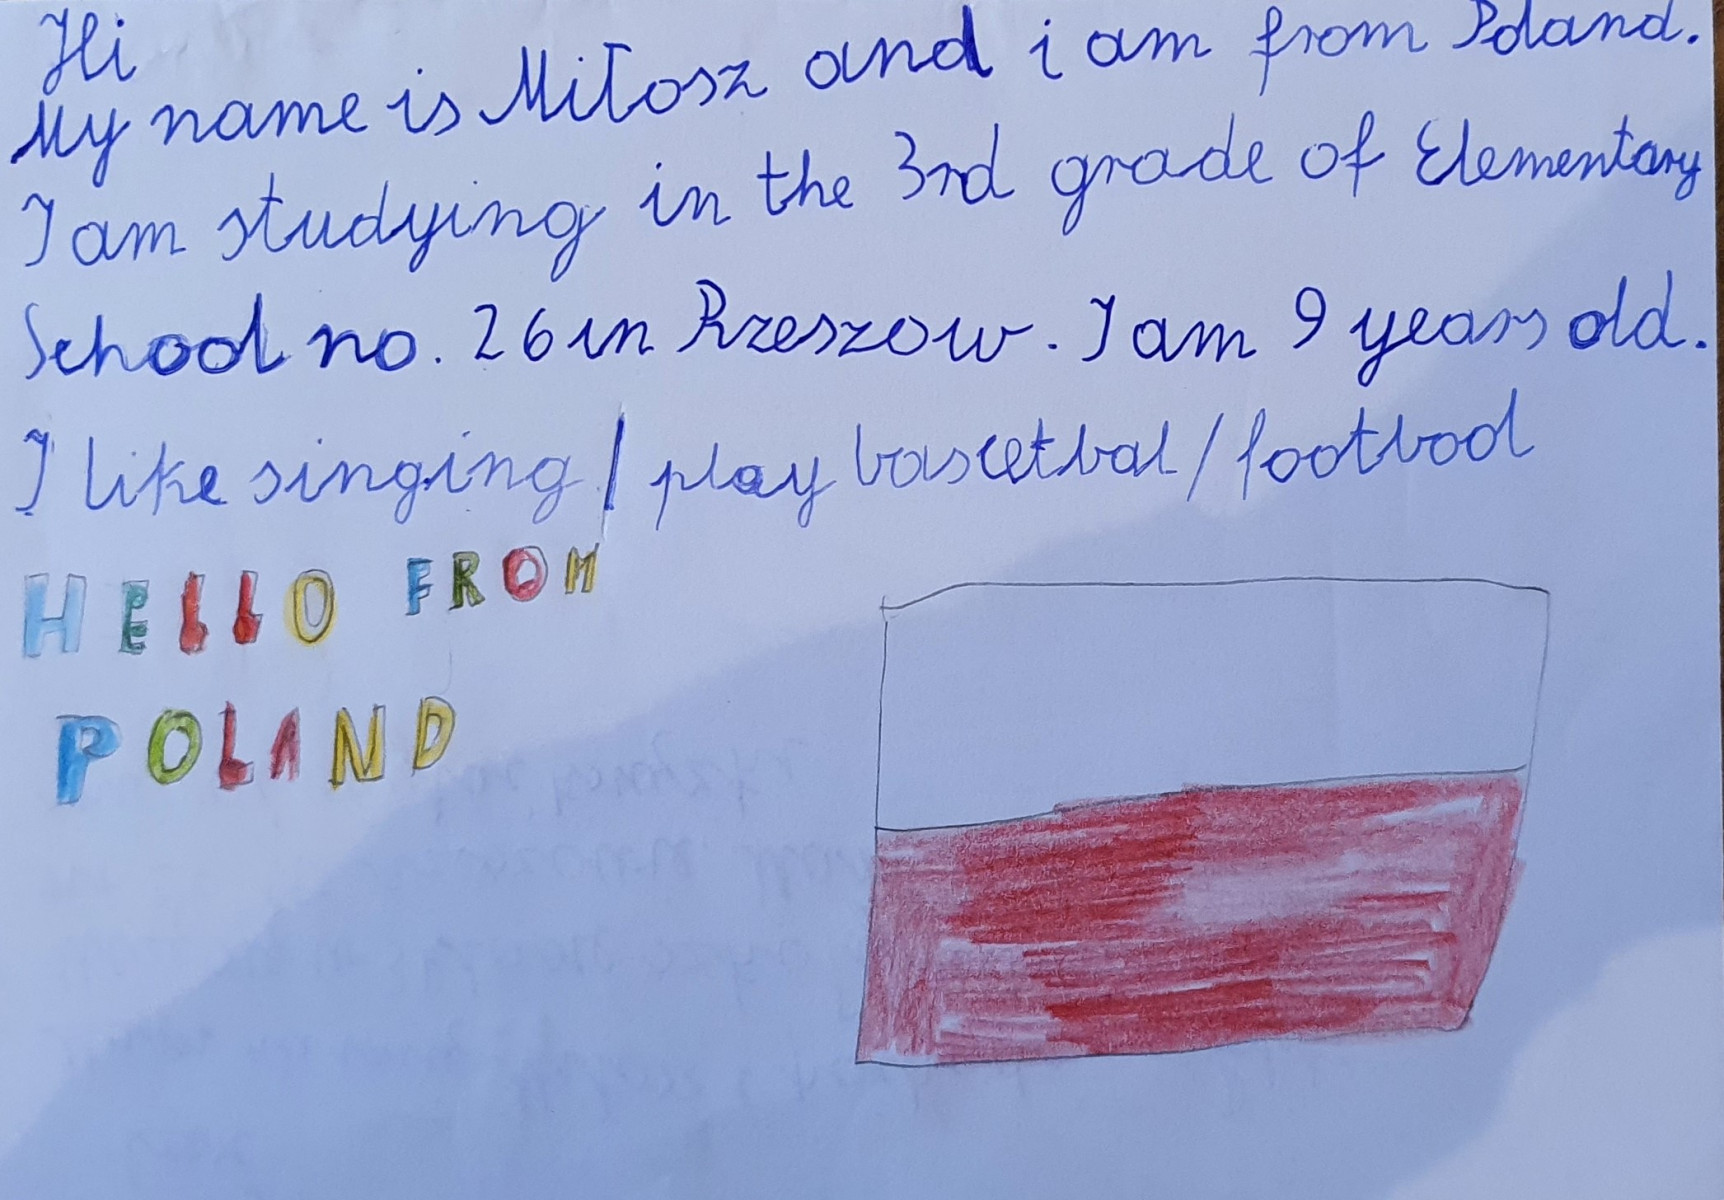 Hi
My name is Miłosz and i am from Poland.
I am studying in the 3rd grade of Elementary
School no. 26 in Rzeszow. I am 9 years old.
I like singing / play bascetbal / footbool
HELLO FROM
POLAND